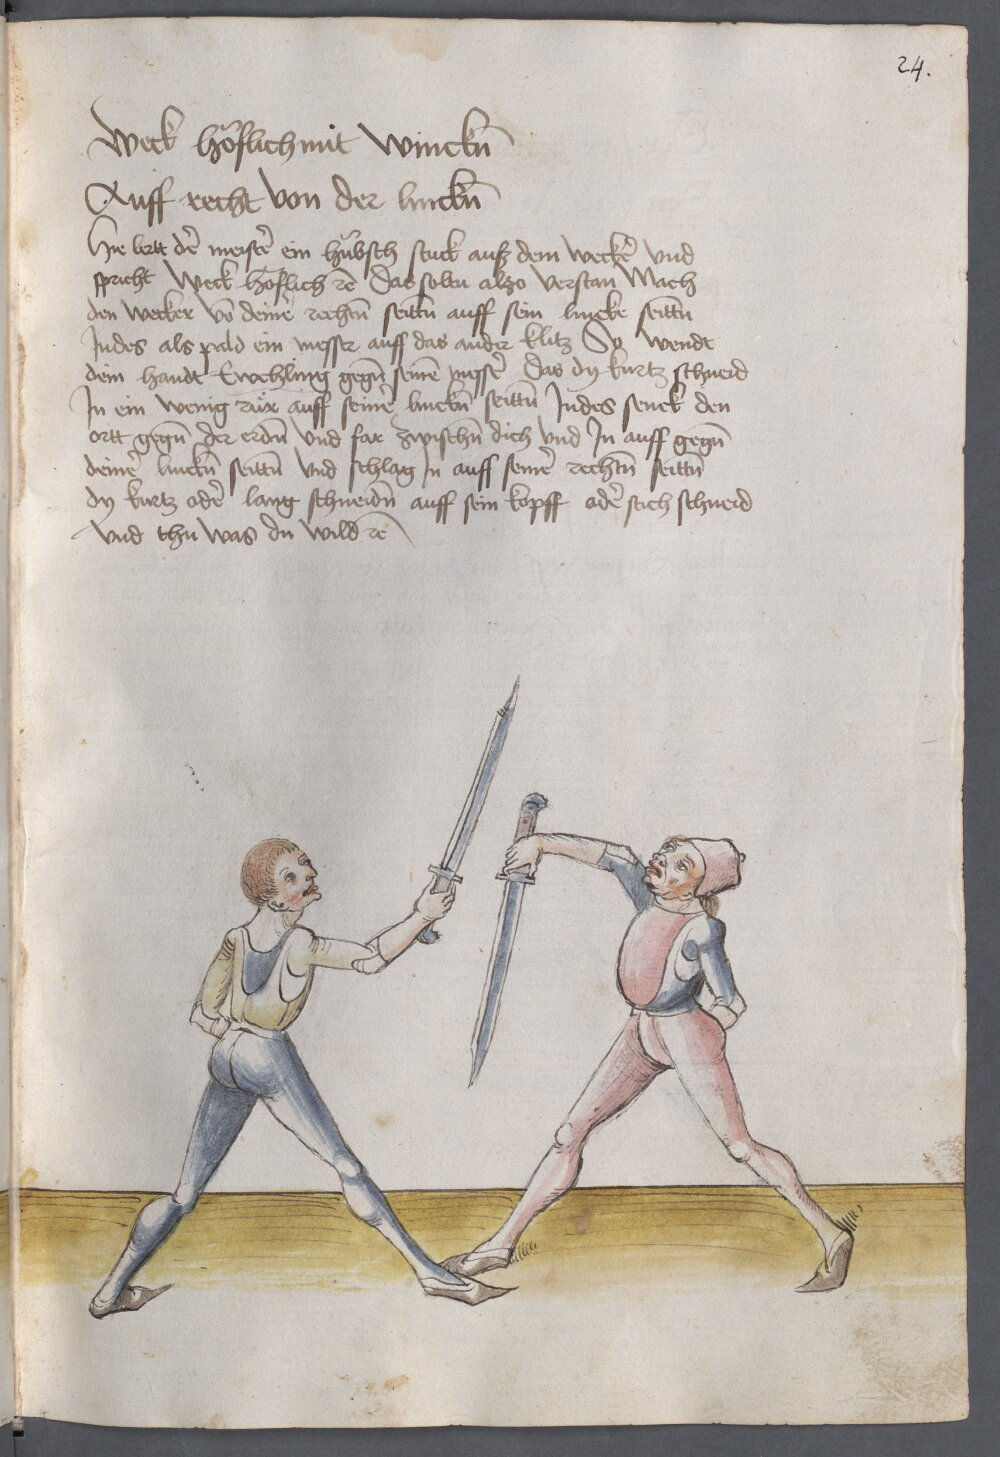 24.
Weck höflich mit winckn̄
Auff recht von der linckn̄
Hie lertt dē meistē ein hübsch stuck ausz dem weckē vnd
spricht Weck höflich rē Das soltu also verstan Mach
den wecker vō deinē rechtn̄ seittn̄ auff sein lincke seittn̄
Indes als pald ein messer auff das ander klitz So wendt
dein handt Ewchling gegn̄ seinē messē das dy kurtz schneid
In ein wenig rür auff seinē linckn̄ seittn̄ Indes senck den
ortt gegn̄ der erdn̄ vnd far zwischn̄ dich vnd In auff gegn̄
deinē linckn̄ seittn̄ vnd schlag In auff seinē rechtn̄ seittn̄
dy kurtz odē lang schneidn̄ auff sein kopff odē stich schneid
vnd thu was du wild rē